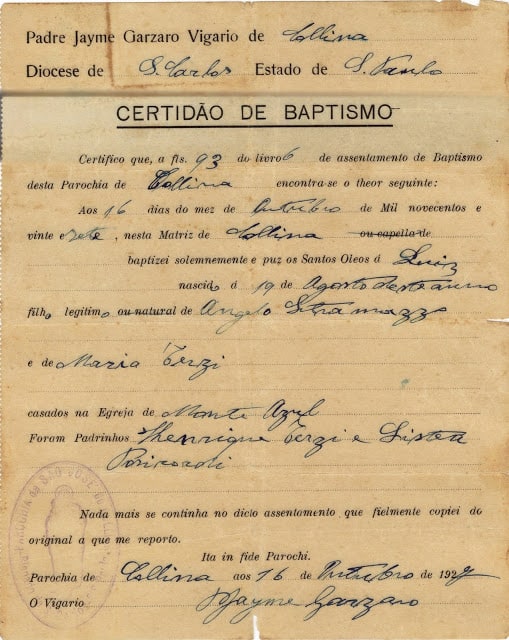 Padre Jayme Garzaro Vigario de Collina
Diocese de S. Carlos Estado de S. Paulo
CERTIDÃO DE BAPTISMO
Certifico que, a fls. 93 do livro 6 de assentamento de Baptismo
desta Parochia de Collina encontra-se o theor seguinte:
Aos 16 dias do mez de Outubro de Mil novecentos e
vinte e sete, nesta Matriz de Collina ou capella de
baptizei solemnemente e puz os Santos Oleos á Luiz
nascido á 19 de Agosto deste anno
filho legitimo ou natural de Angelo Stramazzo
e de Maria Terzi
casados na Egreja de Monte Azul
Foram Padrinhos Henrique Terzi e
Nada mais se continha no dicto assentamento que fielmente copiei do
original a que me reporto.
Ita in fide Parochi.
Parochia de Collina aos 16 de Outubro de 1927
O Vigario P. Jayme Garzaro